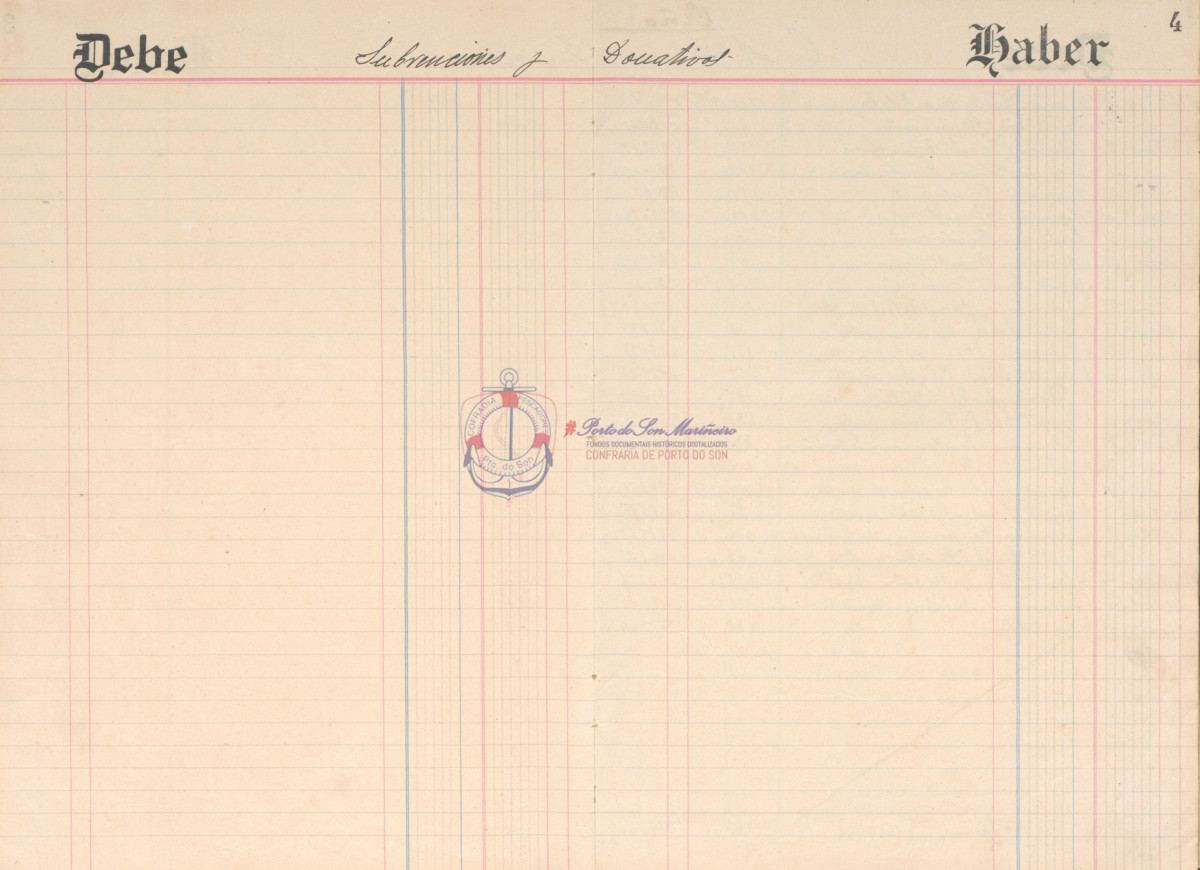 Debe Subvenciones y Donativos Haber 4
COFRADIA PESCADORES
Pto. do Son
#Porto do Son Mariñeiro
FONDOS DOCUMENTAIS HISTÓRICOS DIXITALIZADOS
CONFRARÍA DE PORTO DO SON